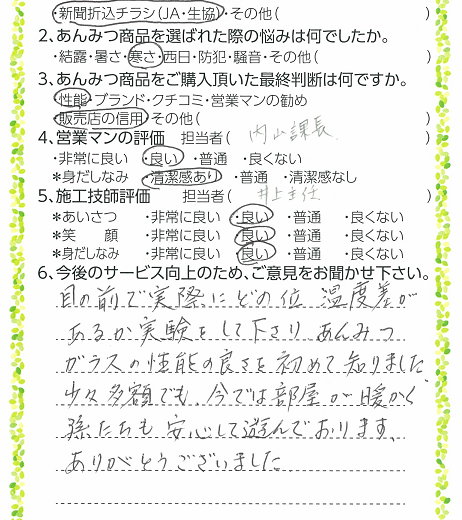 ・新聞折込チラシ(JA・生協)・その他( )
2、あんみつ商品を選ばれた際の悩みは何でしたか。
・結露・暑さ・寒さ・西日・防犯・騒音・その他( )
3、あんみつ商品をご購入頂いた最終判断は何ですか。
・性能・ブランド・クチコミ・営業マンの勧め
・販売店の信用・その他( )
4、営業マンの評価 担当者( 内山課長 )
・非常に良い ・良い ・普通 ・良くない
＊身だしなみ ・清潔感あり ・普通 ・清潔感なし
5、施工技師評価 担当者( 井上主任 )
＊あいさつ ・非常に良い ・良い ・普通 ・良くない
＊笑 顔 ・非常に良い ・良い ・普通 ・良くない
＊身だしなみ ・非常に良い ・良い ・普通 ・良くない
6、今後のサービス向上のため、ご意見をお聞かせ下さい。
目の前で実際にどの位 温度差が
あるか実験をして下さり あんみつ
ガラスの性能の良さを初めて知りました。
少々多額でも、今では部屋が暖かく
孫たちも安心して遊んでおります。
ありがとうございました